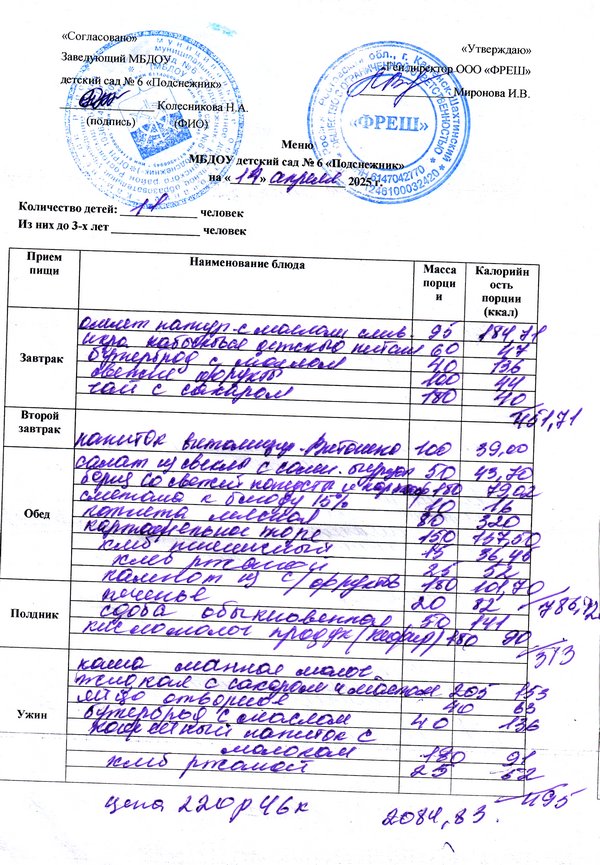 «Согласовано»
«Утверждаю»
Заведующий МБДОУ
Гендиректор ООО «ФРЕШ»
детский сад № 6 «Подснежник»
Миронова И.В.
Колесникова Н.А.
(подпись) (ФИО)
«ФРЕШ»
Меню
МБДОУ детский сад № 6 «Подснежник»
на « 14 » апреля 2025 г.
Количество детей: человек
Из них до 3-х лет человек
Прием пищи Наименование блюда Масса порции Калорийность порции (ккал)
Завтрак
омлет натур. с маслом слив. 95 184,71
икра кабачковая детского питан 60 47
бутерброд с маслом 40 136
свежие фрукты 100 44
чай с сахаром 180 40
451,71
Второй завтрак
напиток витамицир. Витошко 100 39,00
Обед
салат из свеклы с солен. огурцом 50 43,70
борщ со свежей капусты и картоф 180 79,02
сметана к блюду 15% 10 16
котлета мясная 80 320
картофельное пюре 150 137,50
хлеб пшеничный 15 36,48
хлеб ржаной 25 52
компот из с/фруктов 180 101,70
Полдник
печенье 20 82
сдоба обыкновенная 50 141
кисломолоч продук (кефир) 180 90
313
Ужин
каша манная молоч.
жидкая с сахаром и маслом 205 153
яйцо отворное 40 63
бутерброд с маслом 40 136
кофейный напиток с
молоком 180 91
хлеб ржаной 25 52
495
цена 220р 46к 2084,83.